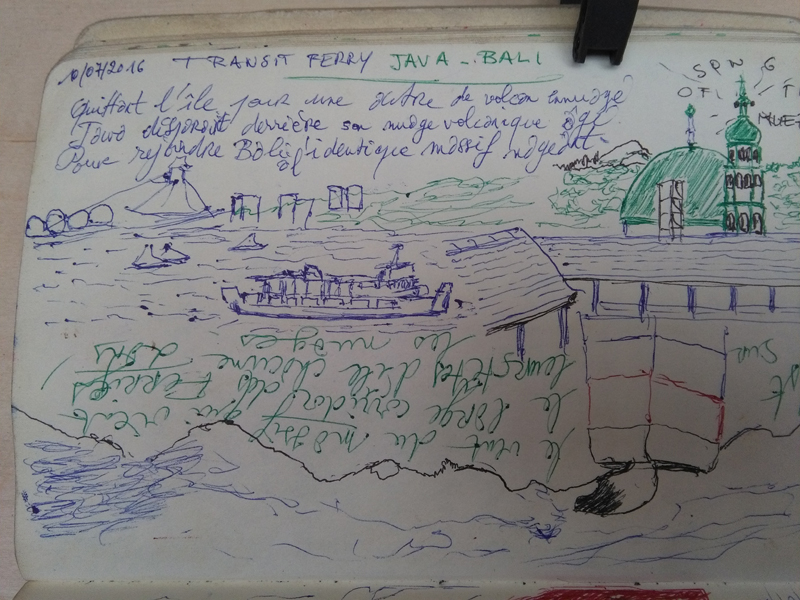 10/07/2016 TRANSIT FERRY JAVA - BALI
Quittant l'île pour une autre de volcan ennuagé
Java disparait derrière son nuage volcanique
Pour rejoindre Bali l'identique massif nageant.
SPN G
OTI
MUEZ
le vent du massif qui vient
le large corridor des Ferries
leurs têtes d'île chacune dans
les nuages
sur